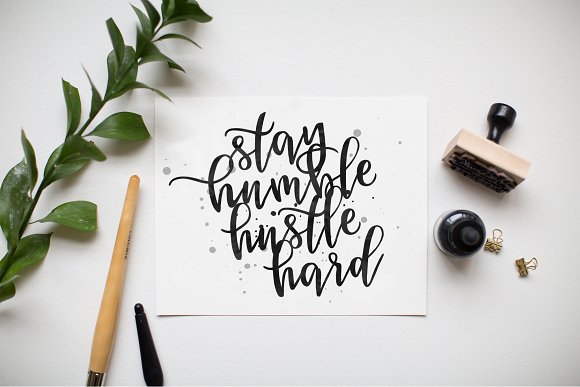 stay
humble
hustle
hard